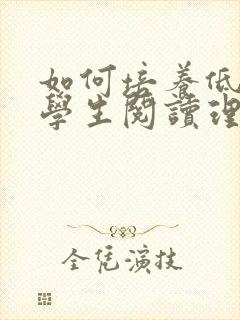 如何培養低
學生閱讀理
全凭演技